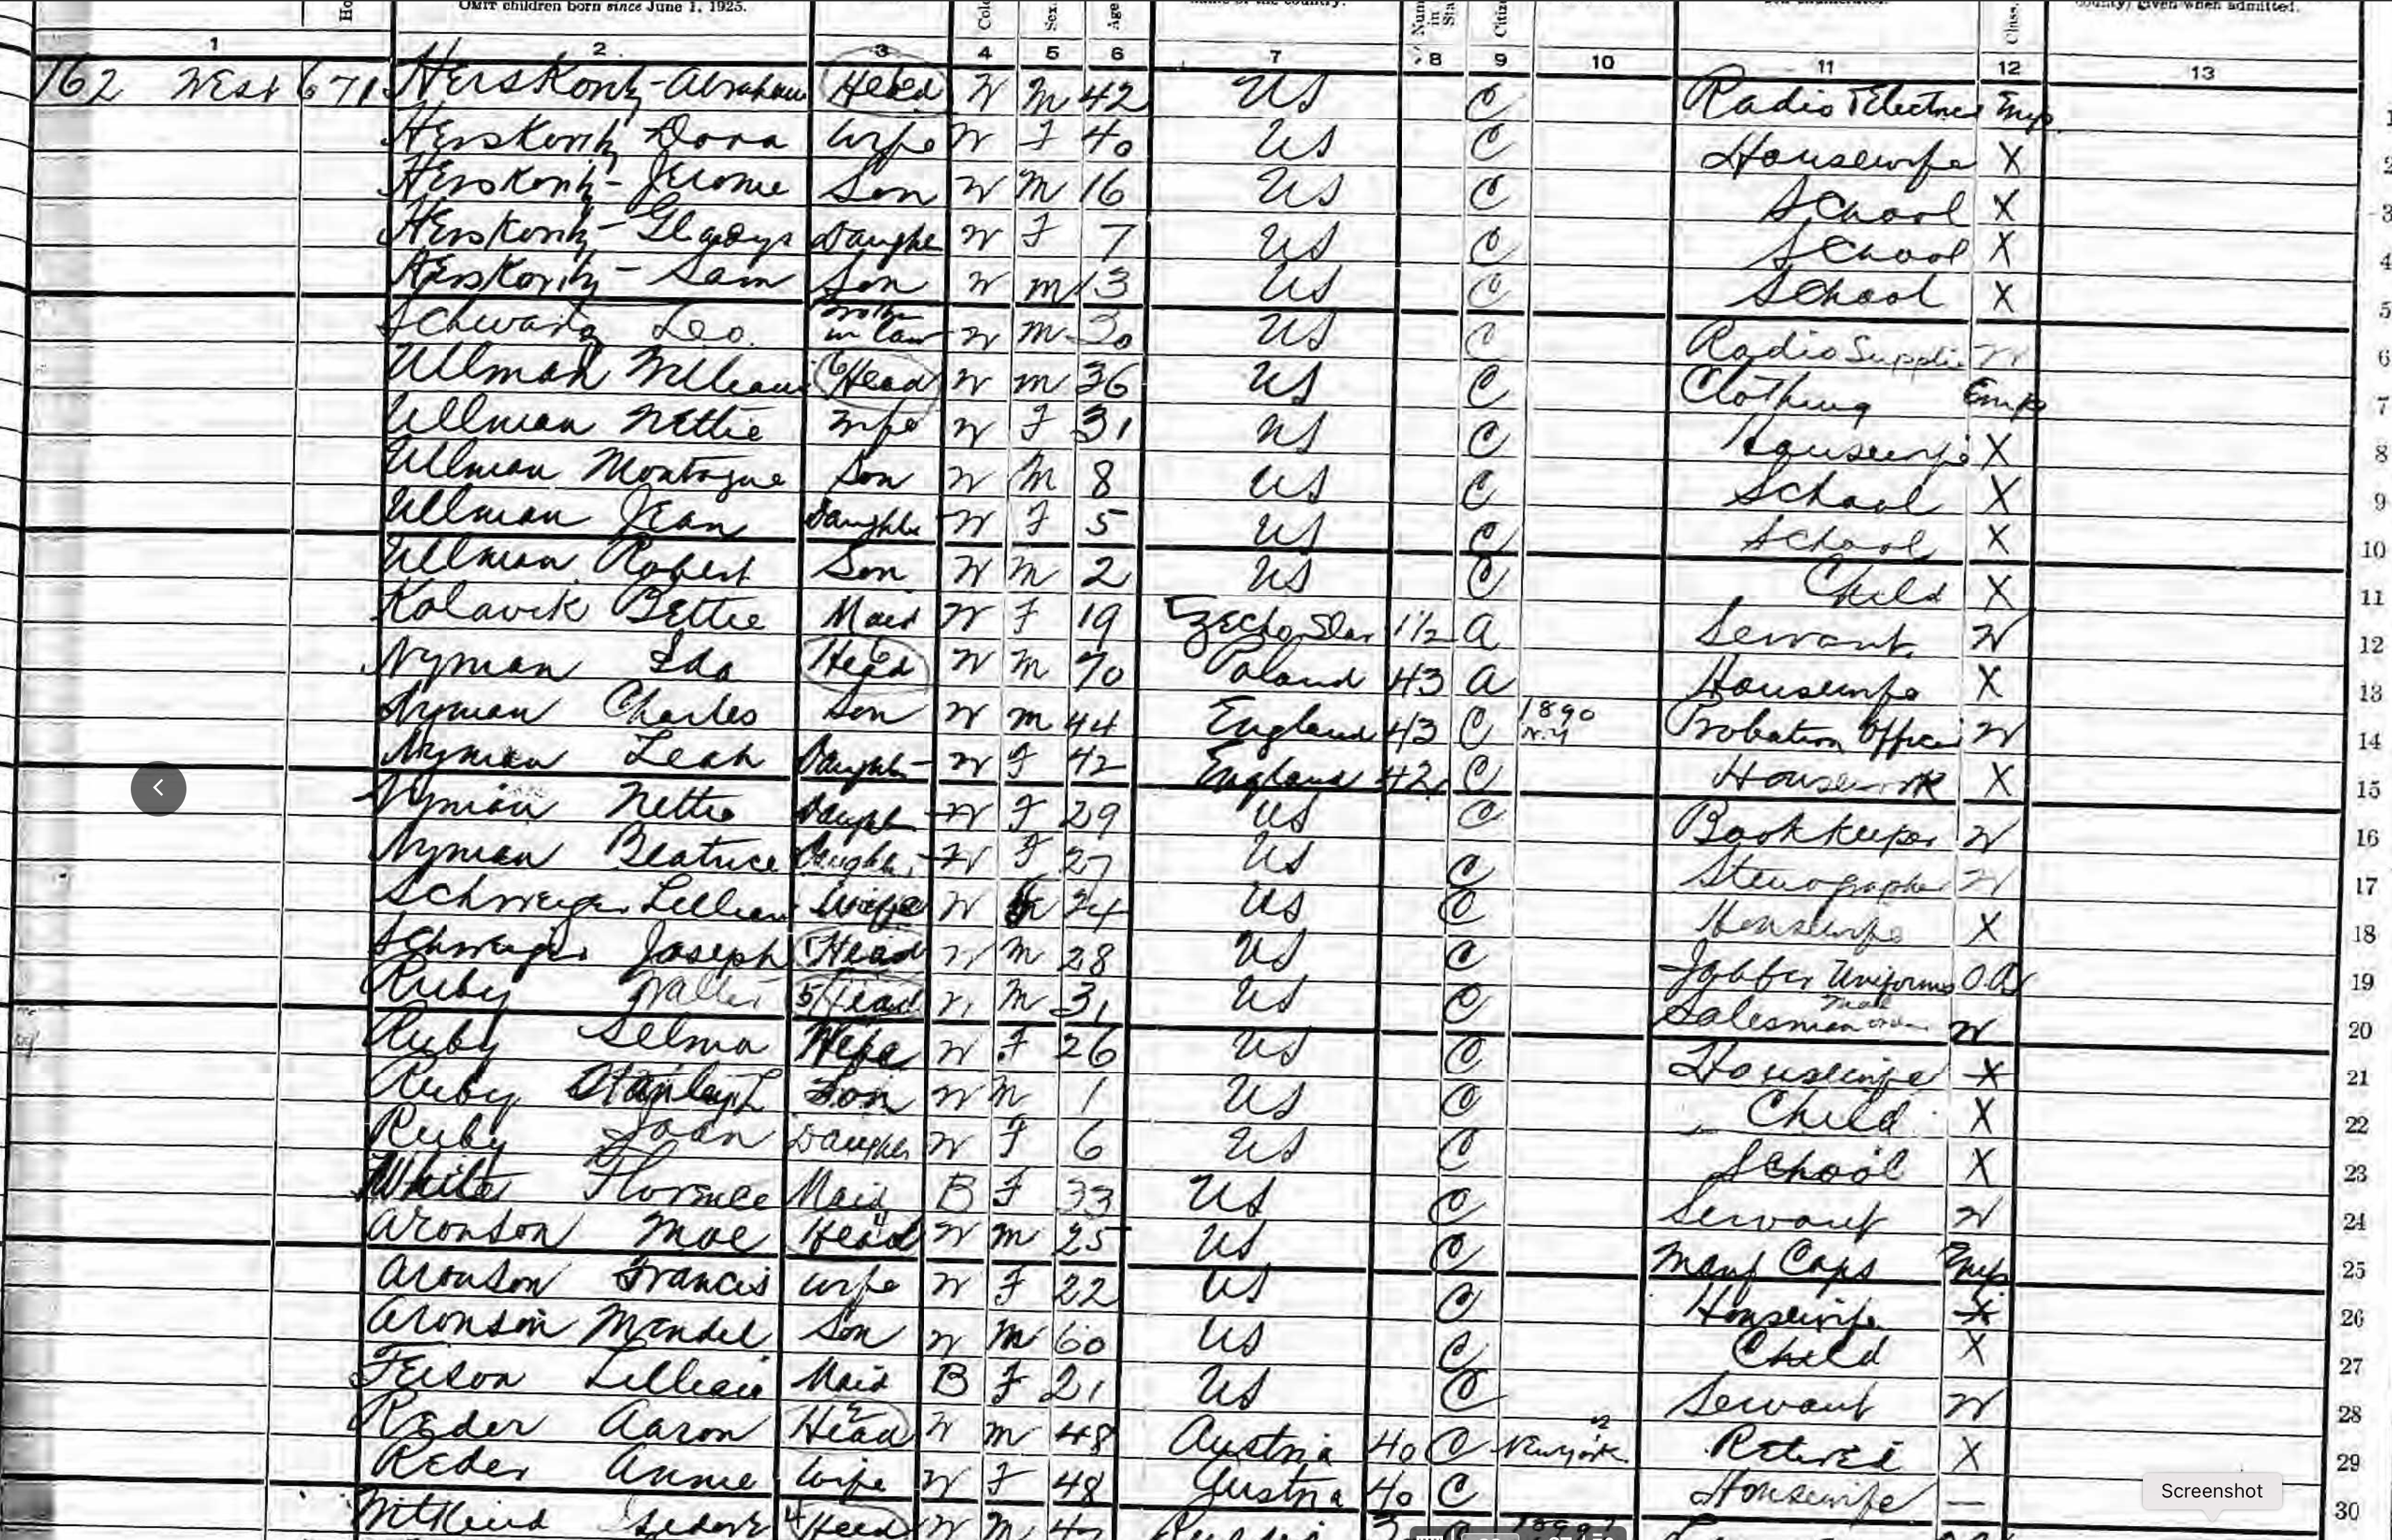 OMIT children born since June 1, 1925.
1 2 3 4 5 6 7 8 9 10 11 12 13
162 West 671 Herskovitz - Abraham Head W M 42 US C Radio Electric Emp 1
Herskovitz Dora Wife W F 40 US C Housewife X 2
Herskovitz - Jerome Son W M 16 US C School X 3
Herskovitz - Gladys Daughter W F 7 US C School X 4
Herskovitz - Sam Son W M 13 US C School X 5
Schwartz Leo. Brother in law W M 30 US C Radio Supplies W 6
Ullman William Head W M 36 US C Clothing Emp 7
Ullman Nettie Wife W F 31 US C Housewife X 8
Ullman Montague Son W M 8 US C School X 9
Ullman Jean Daughter W F 5 US C School X 10
Ullman Robert Son W M 2 US C Child X 11
Kolavik Bettie Maid W F 19 Czecho Slav 1½ A Servant W 12
Nyman Ida Head W M 70 Poland 43 A Housewife X 13
Nyman Charles Son W M 44 England 43 C 1890 N.Y Probation Officer W 14
Nyman Leah Daughter W F 42 England 42 C Housework X 15
Nyman Nettie Daughter W F 29 US C Bookkeeper W 16
Nyman Beatrice Daughter W F 27 US C Stenographer W 17
Schweiger Lillian Wife W F 24 US C Housewife X 18
Schweiger Joseph Head W M 28 US C Jobber Uniforms O.A 19
Ruby Walter 5 Head W M 31 US C Salesman W 20
Ruby Selma Wife W F 26 US C Housewife X 21
Ruby Stanley L Son W M 1 US C Child X 22
Ruby Joan Daughter W F 6 US C School X 23
White Florence Maid B F 33 US C Servant W 24
Aronson Moe Head W M 25 US C Manf Caps Emp 25
Aronson Francis Wife W F 22 US C Housewife X 26
Aronson Mendel Son W M 60 US C Child X 27
Lillian Maid B F 21 US C Servant W 28
Reder Aaron Head W M 48 Austria 40 C New York Retired X 29
Reder Annie Wife W F 48 Austria 40 C Housewife — 30
Head W M
Screenshot